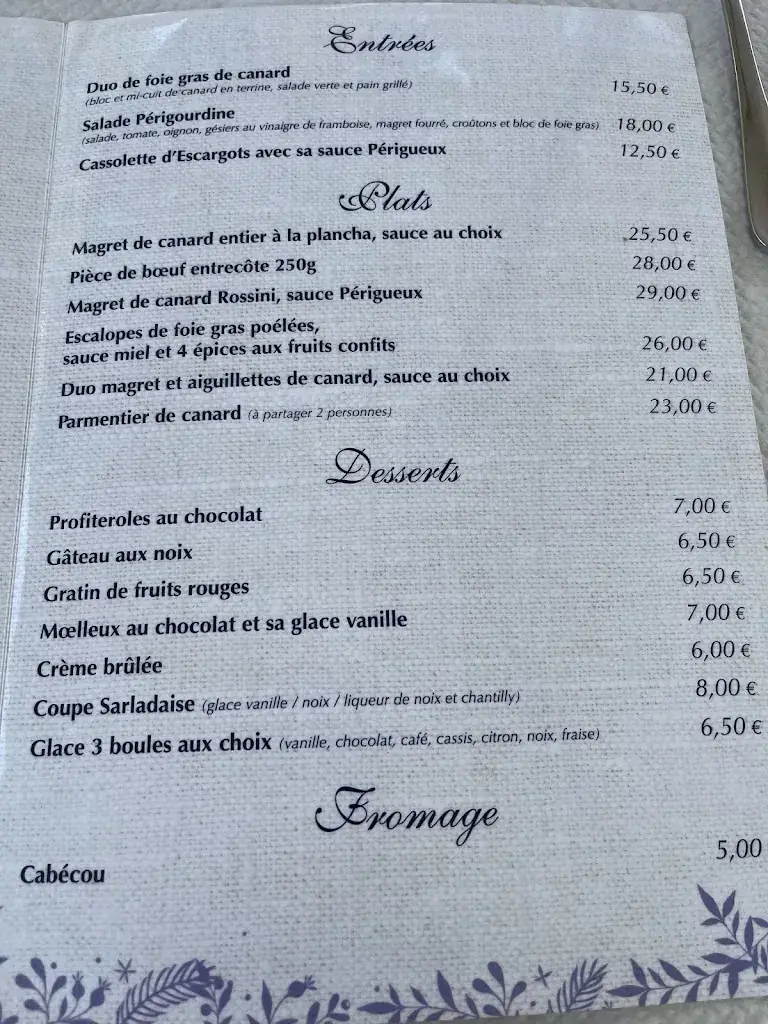 Entrées
Duo de foie gras de canard 15,50 €
(bloc et mi-cuit de canard en terrine, salade verte et pain grillé)
Salade Périgourdine
(salade, tomate, oignon, gésiers au vinaigre de framboise, magret fourré, croûtons et bloc de foie gras) 18,00 €
Cassolette d'Escargots avec sa sauce Périgueux 12,50 €
Plats
Magret de canard entier à la plancha, sauce au choix 25,50 €
Pièce de bœuf entrecôte 250g 28,00 €
Magret de canard Rossini, sauce Périgueux 29,00 €
Escalopes de foie gras poélées,
sauce miel et 4 épices aux fruits confits 26,00 €
Duo magret et aiguillettes de canard, sauce au choix 21,00 €
Parmentier de canard (à partager 2 personnes) 23,00 €
Desserts
Profiteroles au chocolat 7,00 €
Gâteau aux noix 6,50 €
Gratin de fruits rouges 6,50 €
Mœlleux au chocolat et sa glace vanille 7,00 €
Crème brûlée 6,00 €
Coupe Sarladaise (glace vanille / noix / liqueur de noix et chantilly) 8,00 €
Glace 3 boules aux choix (vanille, chocolat, café, cassis, citron, noix, fraise) 6,50 €
Fromage
Cabécou 5,00